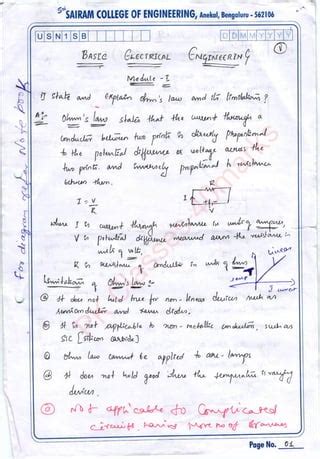 SAIRAM COLLEGE OF ENGINEERING, Anekal, Bengaluru - 562106
USN 1SB
D D M M Y Y Y Y
BASIC ELECTRICAL ENGINEERING
Module - I
State and Explain Ohm's law and its limitations?
A:- Ohm's law states that the current through a
conductor between two points is directly proportional
to the potential difference or voltage across the
two points and inversely proportional to resistance
between them.
I = V/R
R
I
V
where I is current through resistance in units of amperes,
V is potential difference measured across the resistance in
units of volts,
R is resistance of conductor in units of ohms
linear
Limitations of Ohm's law:-
a) It does not hold true for non-linear devices such as
semiconductor and zener diodes.
b) It is not applicable to non-metallic conductors, such as
SiC [silicon carbide]
c) Ohms law cannot be applied to arc-lamps
d) It does not hold good where the temperature is varying
devices.
e) Not applicable to Complicated
circuits having More no of Branches
For diagram refer Note book
Page No. 01